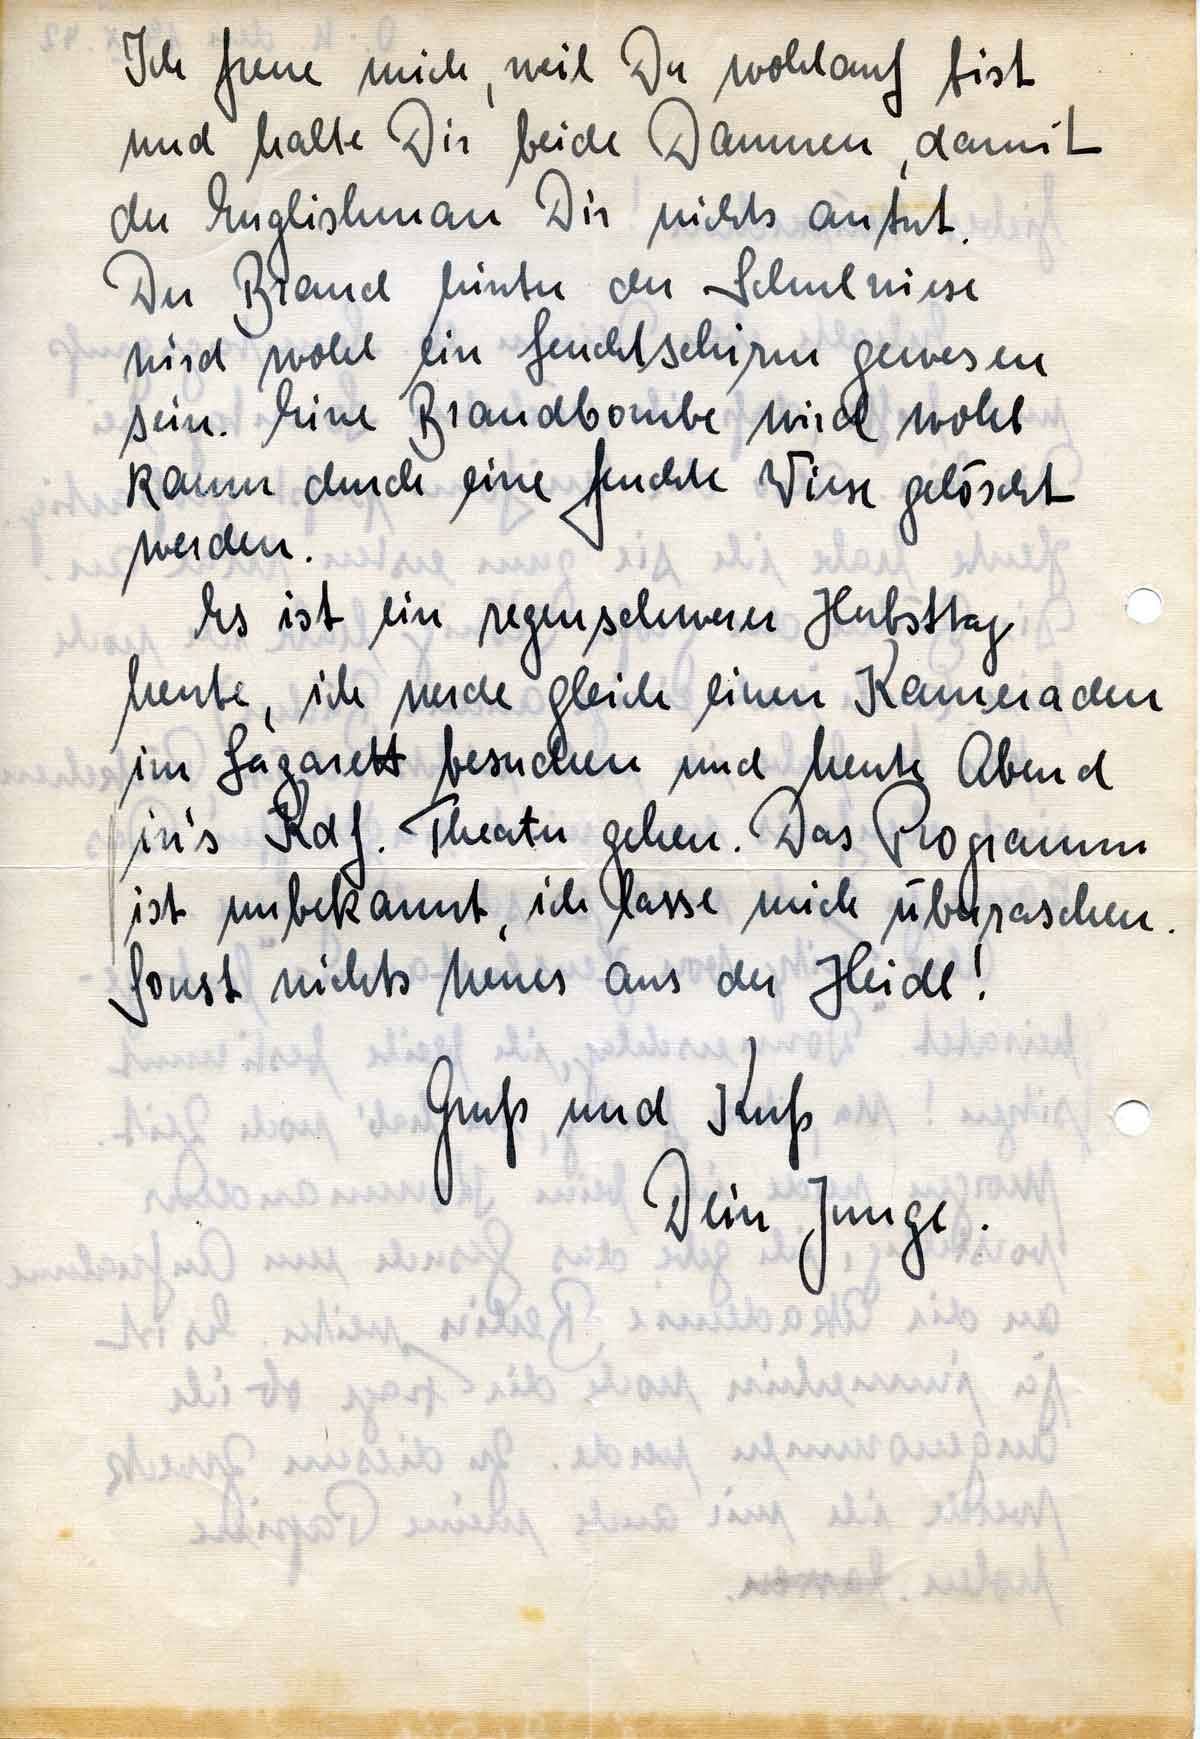 Ich freue mich, weil Du wohlauf bist
und halte Dir beide Daumen, damit
der Englishman Dir nichts antut.
Der Brand hinter der Schulwiese
wird wohl ein Leuchtschirm gewesen
sein. Eine Brandbombe wird wohl
kaum durch eine feuchte Wiese gelöscht
werden.
Es ist ein regenschwerer Herbsttag
heute, ich werde gleich einen Kameraden
im Lazarett besuchen und heute Abend
in's KdF. Theater gehen. Das Programm
ist unbekannt, ich lasse mich überraschen.
Sonst nichts neues aus der Heide!
Gruß und Kuß
Dein Junge.